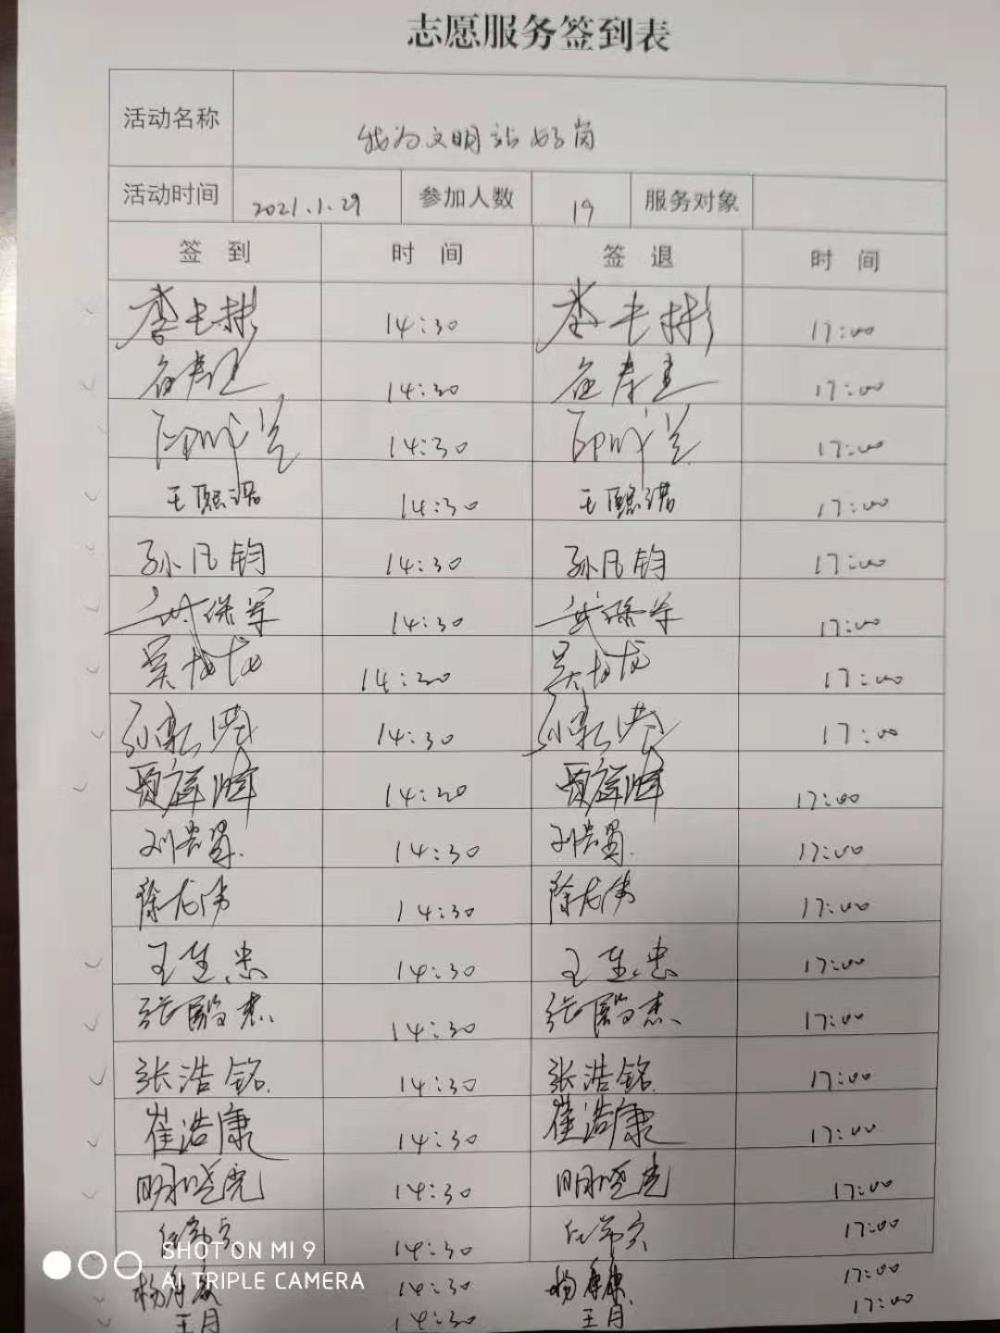 志愿服务签到表
活动名称 我为文明站好岗
活动时间 2021.1.29 参加人数 19 服务对象
签 到 时 间 签 退 时 间
李长彬 14:30 李长彬 17:00
14:30 17:00
14:30 17:00
王熙诺 14:30 王熙诺 17:00
孙凡钧 14:30 孙凡钧 17:00
武保军 14:30 武保军 17:00
吴龙 14:30 吴龙 17:00
14:30 17:00
贾祥峰 14:30 贾祥峰 17:00
14:30 17:00
徐龙伟 14:30 徐龙伟 17:00
王生忠 14:30 王生忠 17:00
14:30 17:00
张浩铭 14:30 张浩铭 17:00
崔浩康 14:30 崔浩康 17:00
14:30 17:00
14:30 17:00
14:30 17:00
王月 14:30 王月 17:00
SHOT ON MI 9
AI TRIPLE CAMERA